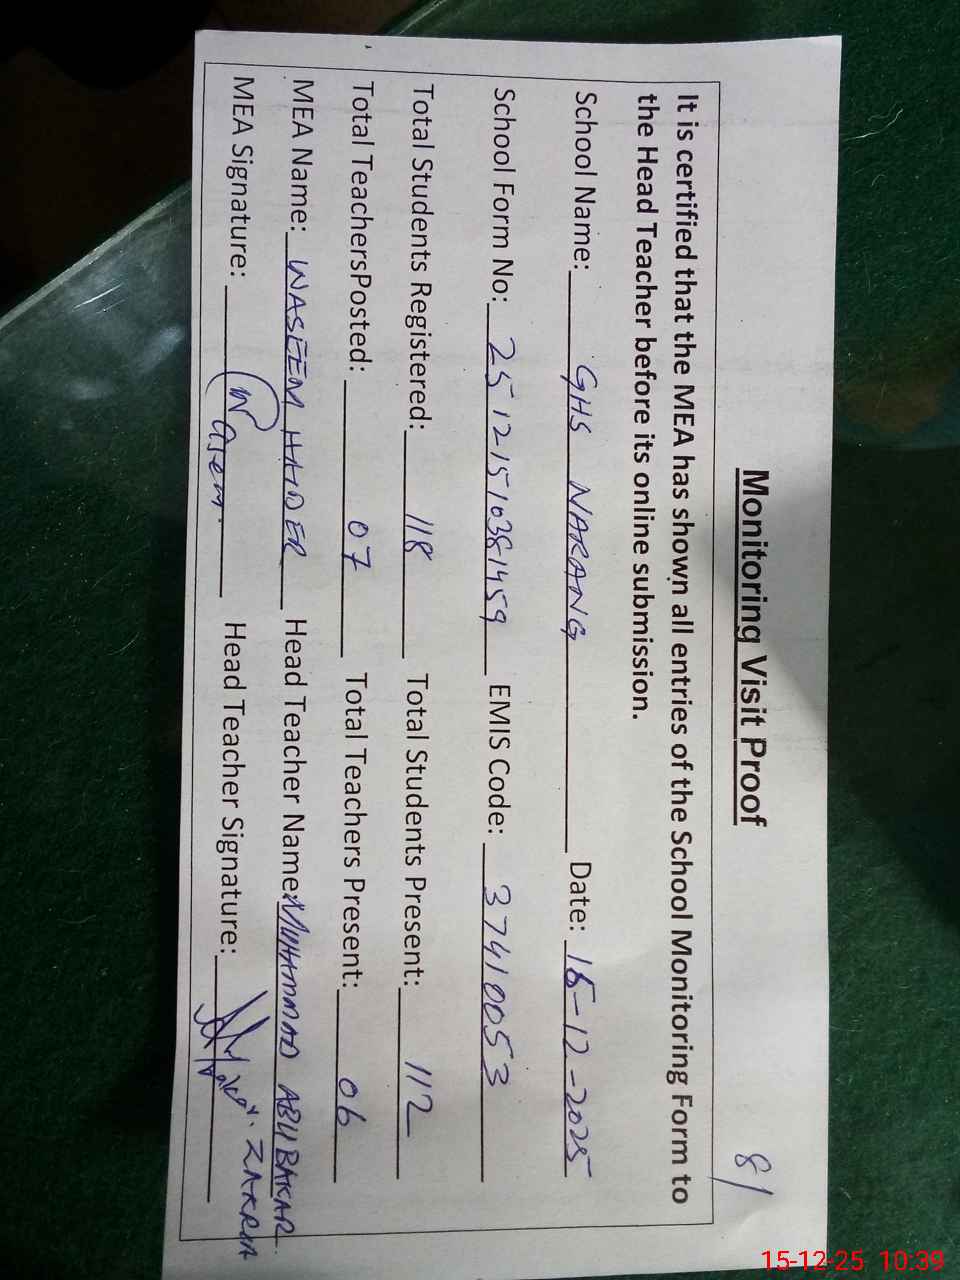 8/
Monitoring Visit Proof
It is certified that the MEA has shown all entries of the School Monitoring Form to
the Head Teacher before its online submission.
School Name: GHS NARANG Date: 15-12-2025
School Form No: 25121510381459 EMIS Code: 37410053
Total Students Registered: 118 Total Students Present: 112
Total TeachersPosted: 07 Total Teachers Present: 06
MEA Name: WASEEM HAIDER Head Teacher Name: MUHAMMAD ABUBAKAR
ZAKRIA
MEA Signature: Wasem Head Teacher Signature:
15-12-25 10:39